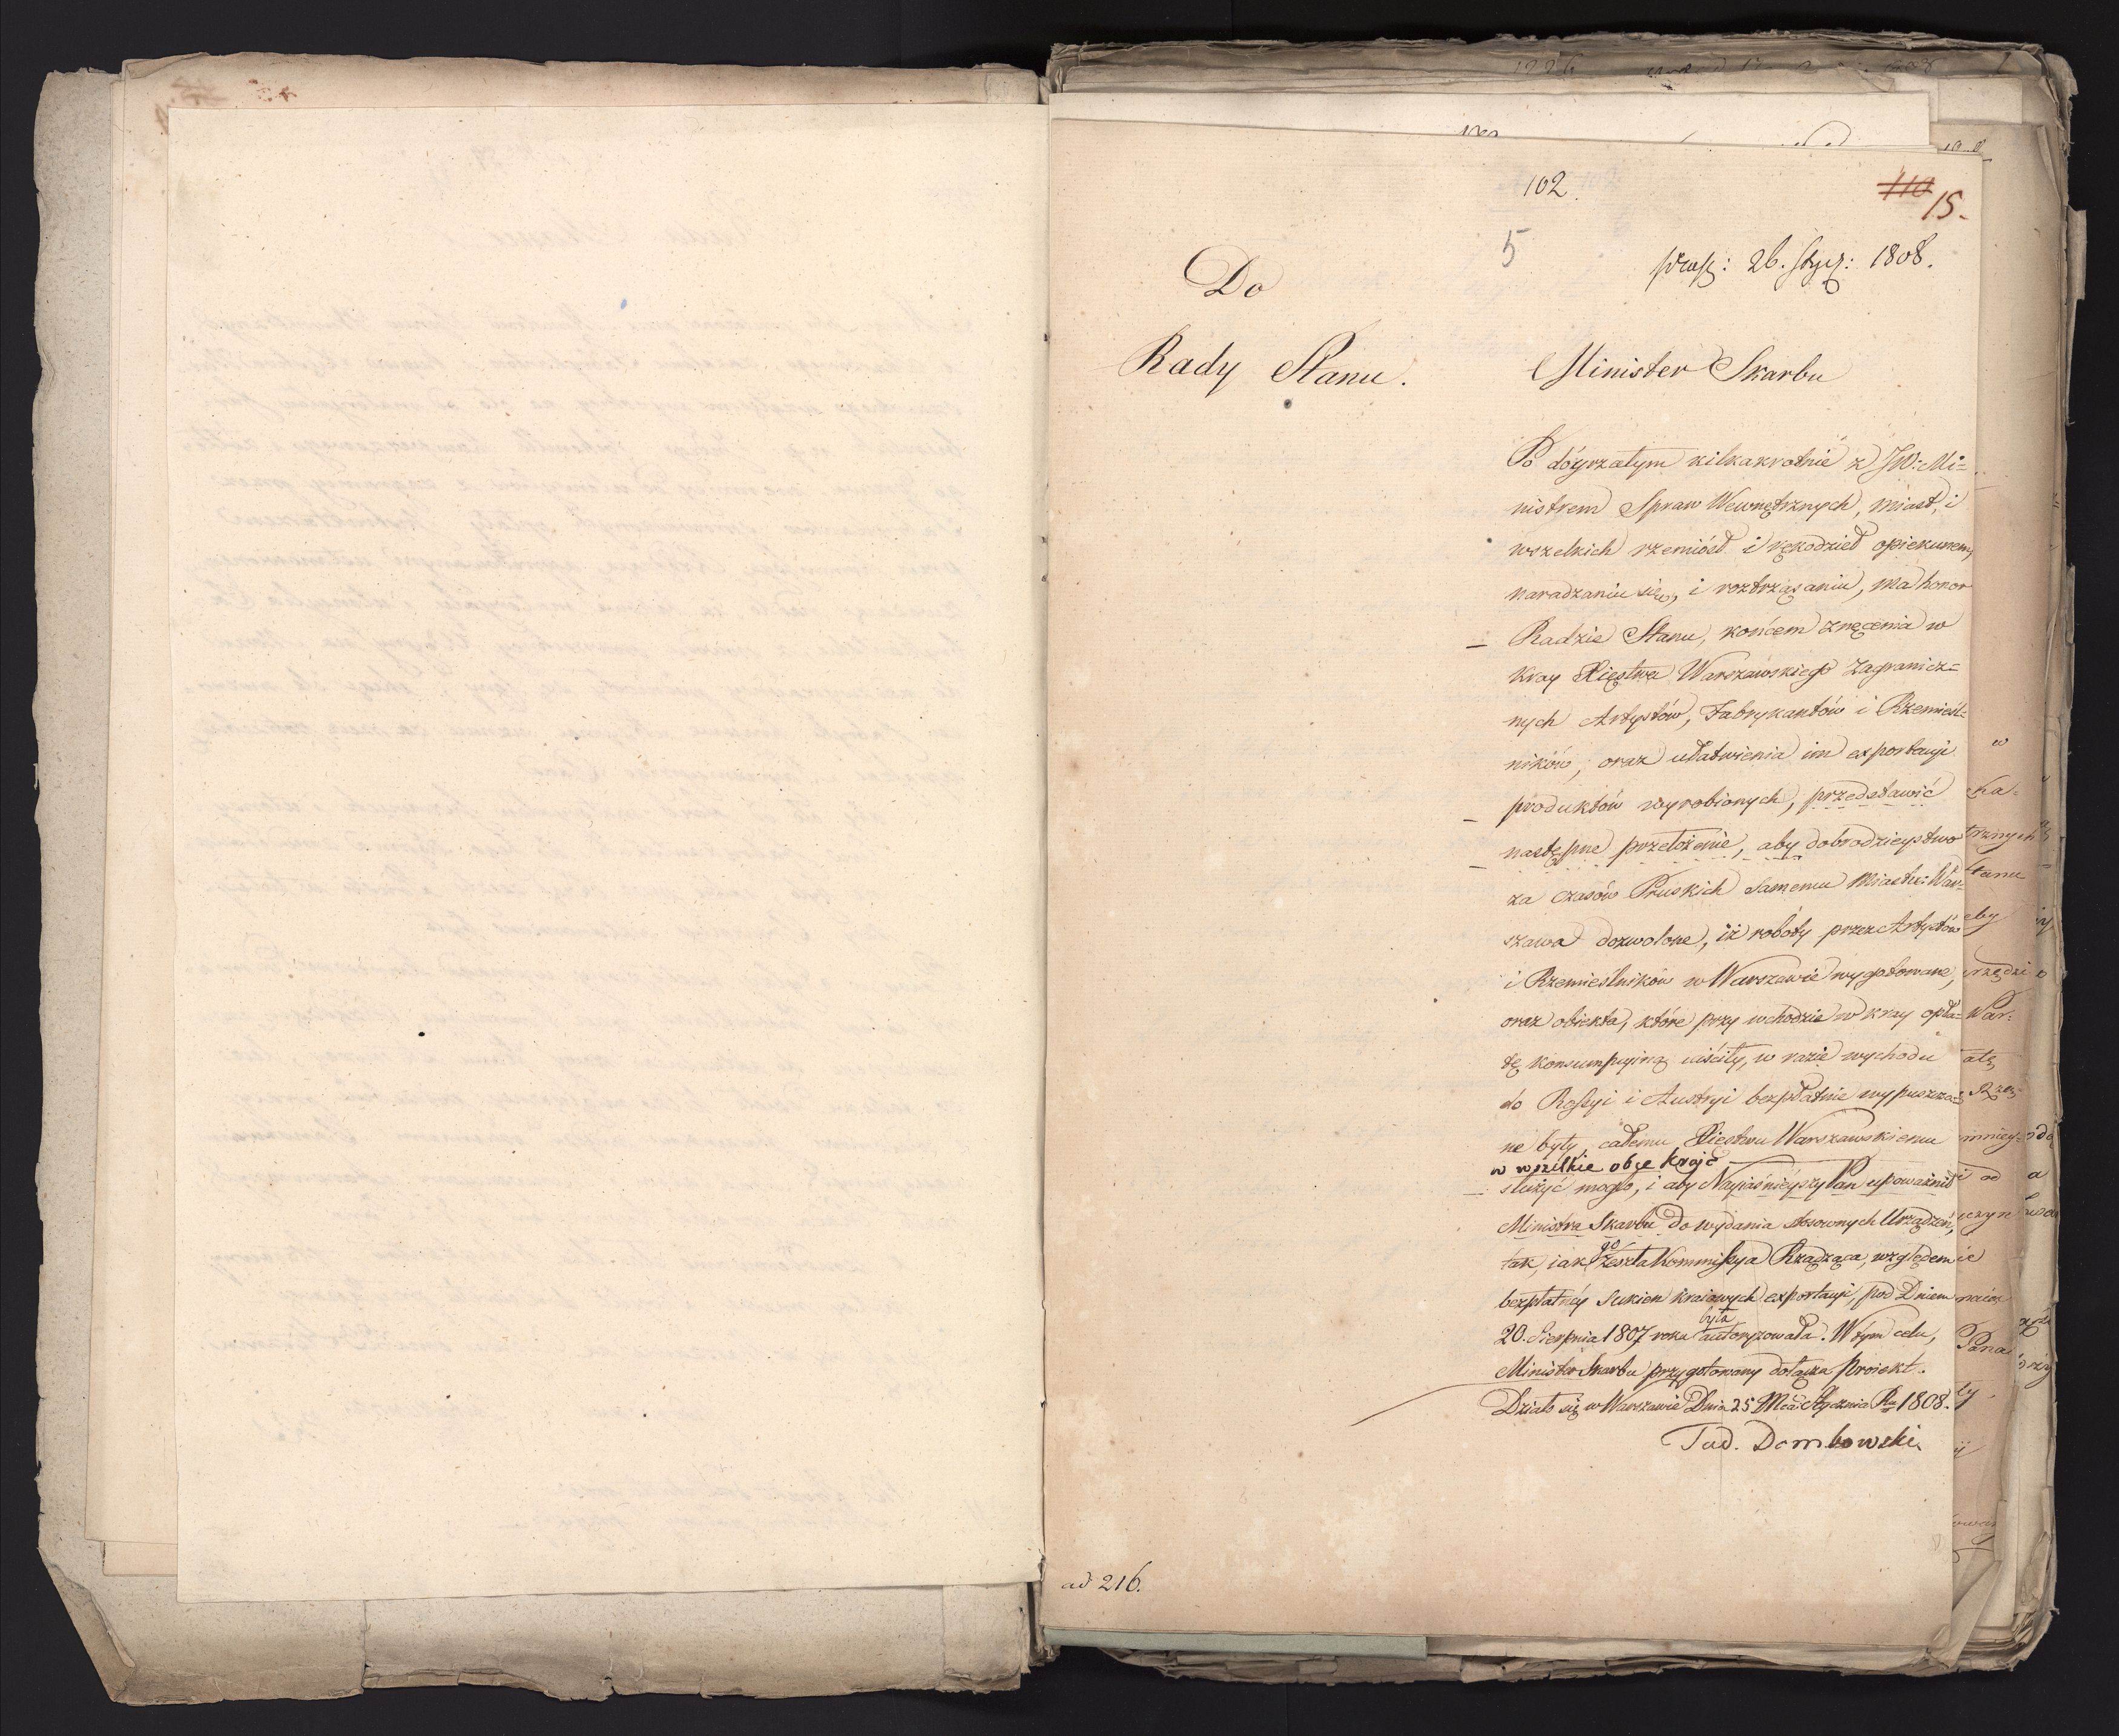 102.
110
15.
5
26. Stycz: 1808.
Do
Rady Stanu.
Minister Skarbu
Po dóyrzałym kilkakrotnie z JW: Mi=
nistrem Spraw Wewnętrznych, Miast, i
wszelkich rzemiósł i rękodzieł opiekunem,
naradzaniu się, i roztrząsaniu, ma honor
Radzie Stanu, końcem znęcenia w
Kray Xięstwa Warszawskiego Zagranicz=
nych Artystów, Fabrykantów i Rzemieśl=
ników, oraz ułatwienia im exportacyi
produktów wyrobionych, przedstawić
następne przełożenie, aby dobrodzieystwo
za czasów Pruskich Samemu Miastu: War=
szawa dozwolone, iż roboty przez Artystów
i Rzemieślników w Warszawie wygotowane,
oraz obiekta, które przy wchodzie w kray opła=
tę konsumpcyiną uiściły, w razie wychodu
do Rossyi i Austryi bezpłatnie wypuszcza=
ne były, całemu Xięstwu Warszawskiemu
w wszelkie obce kraje
służyć mogło, i aby Nayiaśnieyszy Pan upoważnił
Ministra Skarbu do wydania stosownych Urządzeń,
tak, iak go zeszła Kommissya Rządząca, względem
bezpłatney Sukien kraiowych exportacyi, pod Dniem
20. Sierpnia 1807 roku była autoryzowała. W tym celu,
Minister Skarbu przygotowany dołącza Proiekt.
Działo się w Warszawie Dnia 25 Mca Stycznia Rku 1808.
Tad. Dembowski
ad 216.